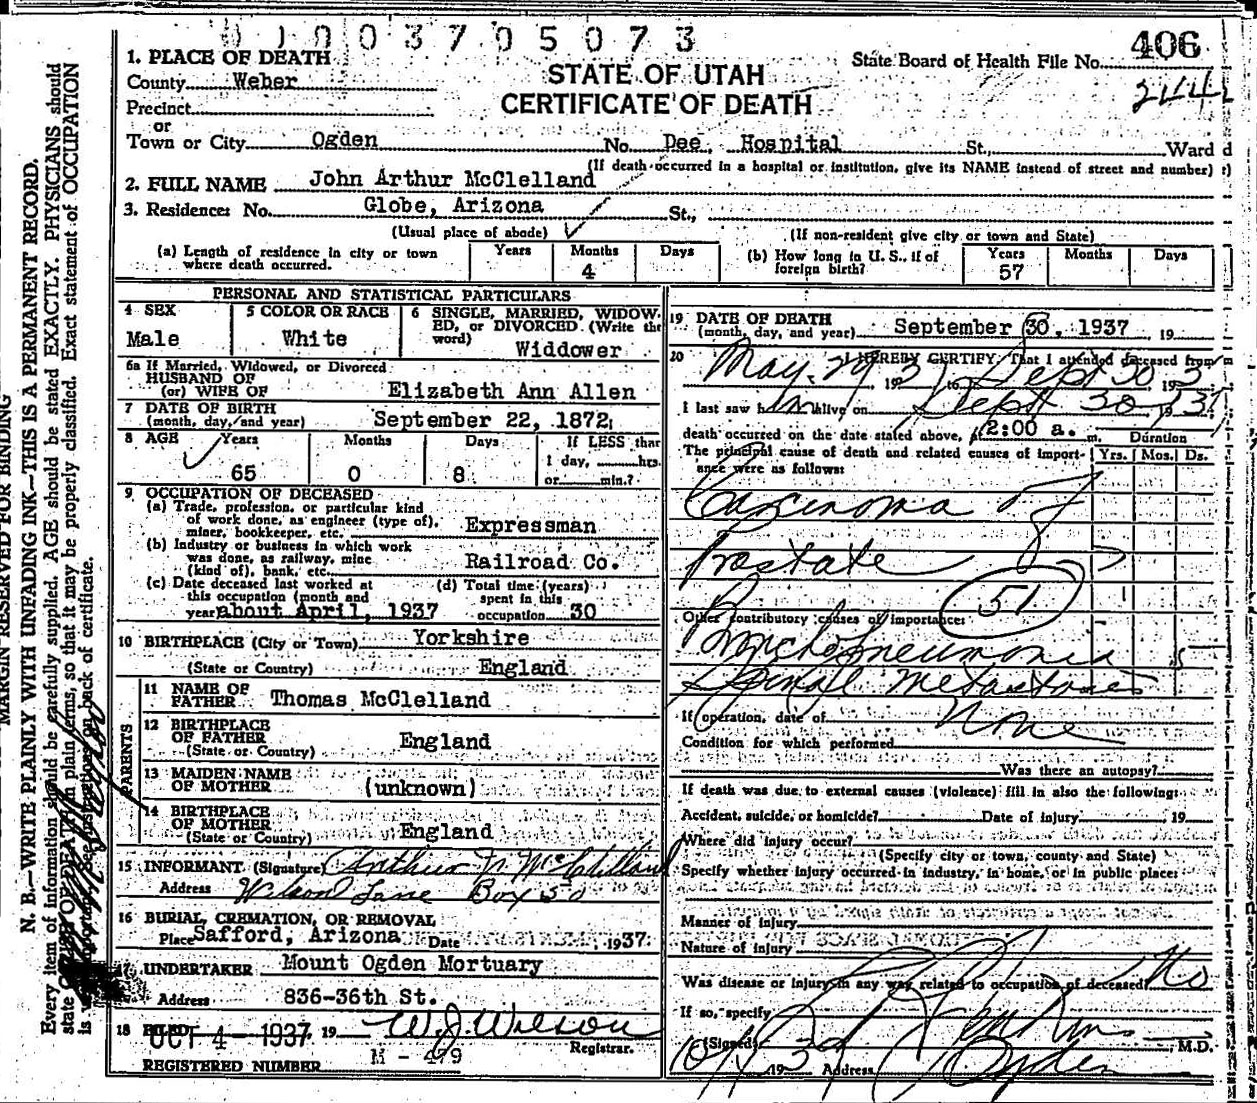 01003705073
1. PLACE OF DEATH
County Weber
Precinct
or
Town or City Ogden No. Dee Hospital St., Ward
STATE OF UTAH
CERTIFICATE OF DEATH
State Board of Health File No. 406
244
(If death occurred in a hospital or institution, give its NAME instead of street and number)
2. FULL NAME John Arthur McClelland
3. Residence: No. Globe, Arizona St.,
(Usual place of abode) (If non-resident give city or town and State)
(a) Length of residence in city or town where death occurred. Years Months 4 Days
(b) How long in U. S., if of foreign birth? Years 57 Months Days
PERSONAL AND STATISTICAL PARTICULARS
4 SEX Male
5 COLOR OR RACE White
6 SINGLE, MARRIED, WIDOW-
ED, or DIVORCED. (Write the
word) Widdower
6a If Married, Widowed, or Divorced
HUSBAND OF
(or) WIFE OF Elizabeth Ann Allen
7 DATE OF BIRTH
(month, day, and year) September 22, 1872
8 AGE Years 65 Months 0 Days 8 If LESS than
1 day, hrs.
or min.?
9 OCCUPATION OF DECEASED
(a) Trade, profession, or particular kind
of work done, as engineer (type of),
miner, bookkeeper, etc. Expressman
(b) Industry or business in which work
was done, as railway, mine
(kind of), bank, etc. Railroad Co.
(c) Date deceased last worked at
this occupation (month and
year) about April, 1937
(d) Total time (years)
spent in this
occupation 30
10 BIRTHPLACE (City or Town) Yorkshire
(State or Country) England
PARENTS
11 NAME OF
FATHER Thomas McClelland
12 BIRTHPLACE
OF FATHER England
(State or Country)
13 MAIDEN NAME
OF MOTHER (unknown)
14 BIRTHPLACE
OF MOTHER
(State or Country) England
15 INFORMANT (Signature) Arthur N McClelland
Address Wilson Lane Box 50
16 BURIAL, CREMATION, OR REMOVAL
Place Safford, Arizona Date , 1937
17 UNDERTAKER Mount Ogden Mortuary
Address 836-36th St.
18 FILED OCT 4 - 1937 19 W. J. Wilson
Registrar.
REGISTERED NUMBER M - 479
19 DATE OF DEATH
(month, day, and year) September 30, 1937, 19
20 I HEREBY CERTIFY, That I attended deceased from
May 29, 1937 to Sept 30, 193
I last saw him alive on Sept 30 1937
death occurred on the date stated above, at 2:00 a. m.
The principal cause of death and related causes of import-
ance were as follows:
Duration
Yrs. Mos. Ds.
Carcinoma of
Prostate
51
Other contributory causes of importance:
Bronchopneumonia 5
Spinal metastases
If operation, date of None
Condition for which performed
Was there an autopsy?
If death was due to external causes (violence) fill in also the following:
Accident, suicide, or homicide? Date of injury 19
Where did injury occur?
(Specify city or town, county and State)
Specify whether injury occurred in industry, in home, or in public place:
Manner of injury
Nature of injury
Was disease or injury in any way related to occupation of deceased? No
If so, specify
(Signed) , M.D.
10/4 1937 Address Ogden
MARGIN RESERVED FOR BINDING
N. B.—WRITE PLAINLY WITH UNFADING INK—THIS IS A PERMANENT RECORD.
Every item of information should be carefully supplied. AGE should be stated EXACTLY. PHYSICIANS should
state CAUSE OF DEATH in plain terms, so that it may be properly classified. Exact statement of OCCUPATION
is very important. See instructions on back of certificate.